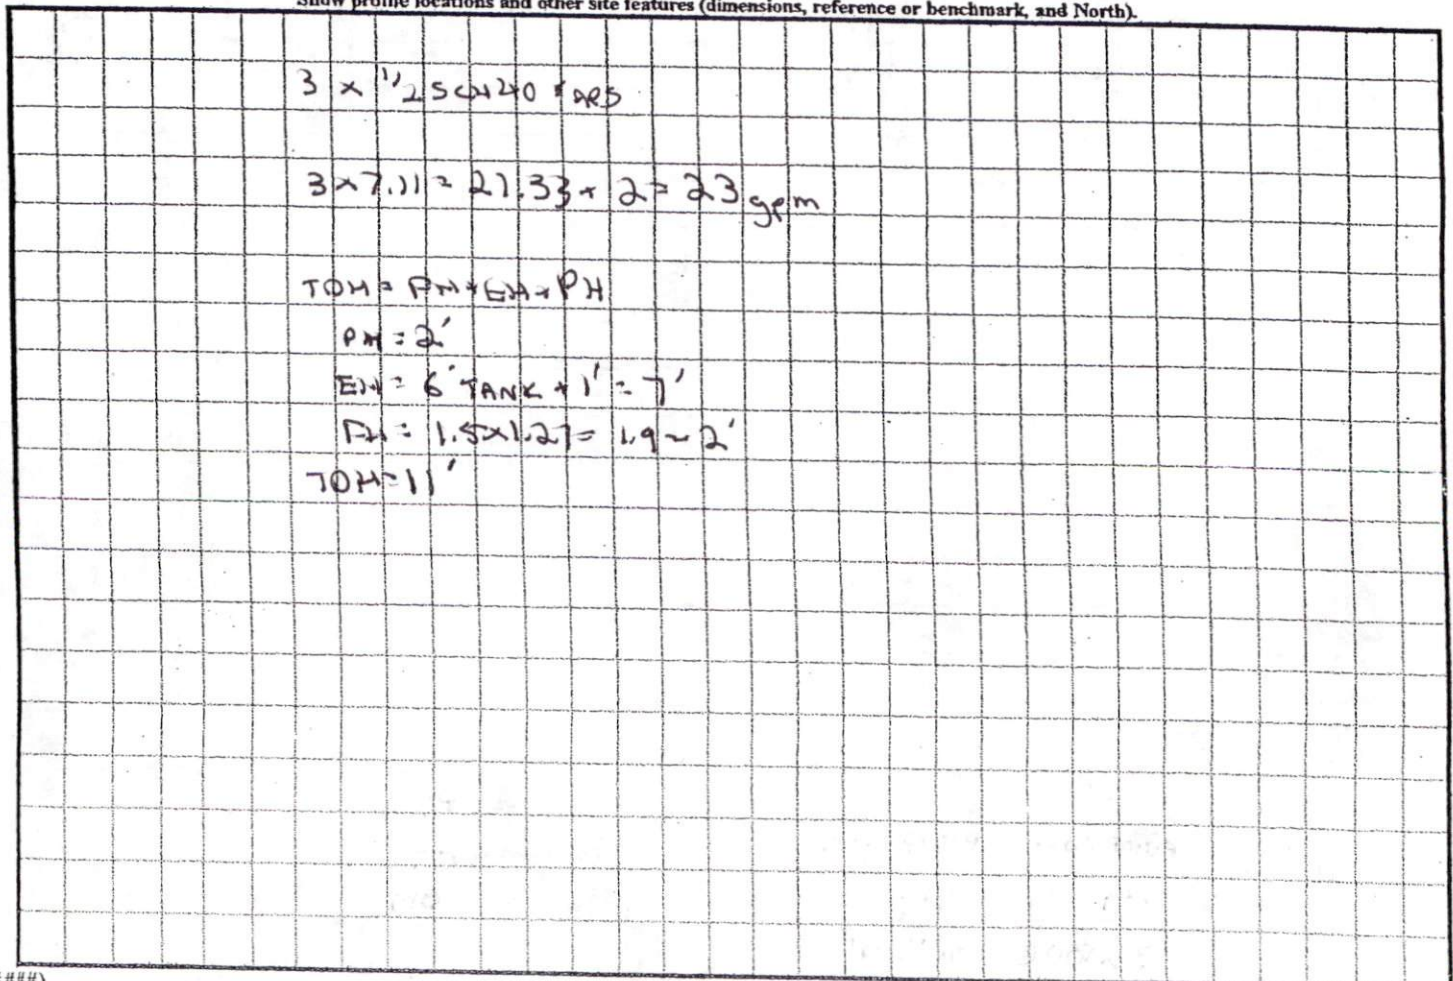 Show profile locations and other site features (dimensions, reference or benchmark, and North).
3 x 1/2 SCH 40 TAPS
3 x 7.11 = 21.33 + 2 = 23 gpm
TDH = PH + EH + PH
PH = 2'
EH = 6' TANK + 1' = 7'
FH = 1.5 x 1.27 = 1.9 ~ 2'
TDH = 11'
###)